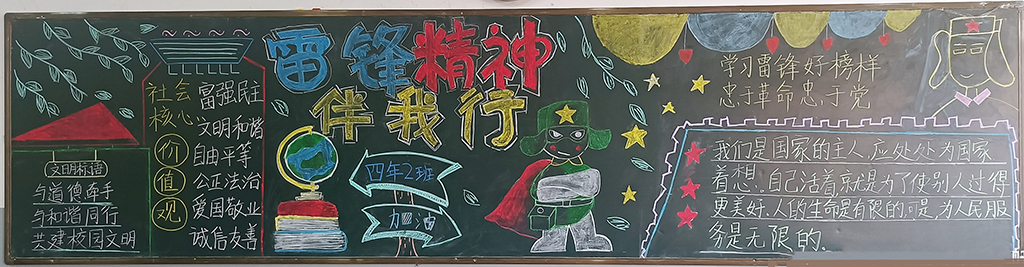 雷锋精神
伴我行
文明标语
与道德牵手
与和谐同行
共建校园文明
社会
核心
价
值
观
富强民主
文明和谐
自由平等
公正法治
爱国敬业
诚信友善
四年2班
加油
学习雷锋好榜样
忠于革命忠于党
我们是国家的主人,应处处为国家
着想.自己活着就是为了使别人过得
更美好.人的生命是有限的.可是,为人民服
务是无限的.